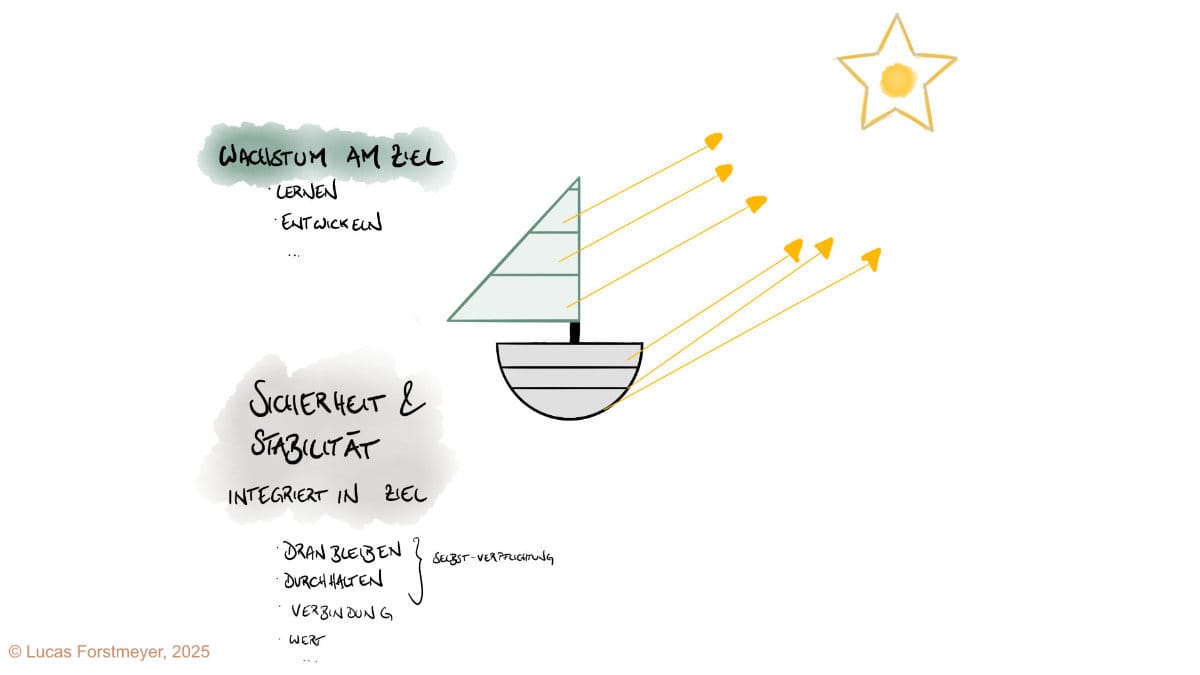 WACHSTUM AM ZIEL
· LERNEN
· ENTWICKELN
...
SICHERHEIT &
STABILITÄT
INTEGRIERT IN ZIEL
· DRANBLEIBEN
· DURCHHALTEN
SELBST-VERPFLICHTUNG
· VERBINDUNG
· WERT
...
© Lucas Forstmeyer, 2025